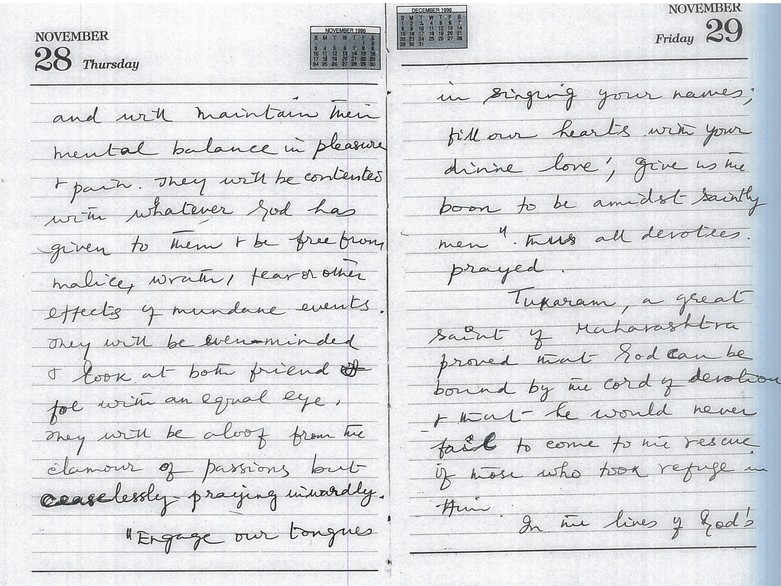 NOVEMBER
28 Thursday
NOVEMBER 1996
and will maintain their
mental balance in pleasure
& pain. They will be contented
with whatever God has
given to them & be free from
malice, wrath, fear or other
effects of mundane events.
They will be even-minded
& look at both friend &
foe with an equal eye.
They will be aloof from the
clamour of passions but
ceaselessly praying inwardly.
"Engage our tongues
DECEMBER 1996
NOVEMBER
Friday 29
in singing your names;
fill our hearts with your
divine love; give us the
boon to be amidst saintly
men". Thus all devotees
prayed.
Tukaram, a great
saint of Maharashtra
proved that God can be
bound by the cord of devotion
& that he would never
fail to come to the rescue
of those who took refuge in
Him.
In the lives of God's